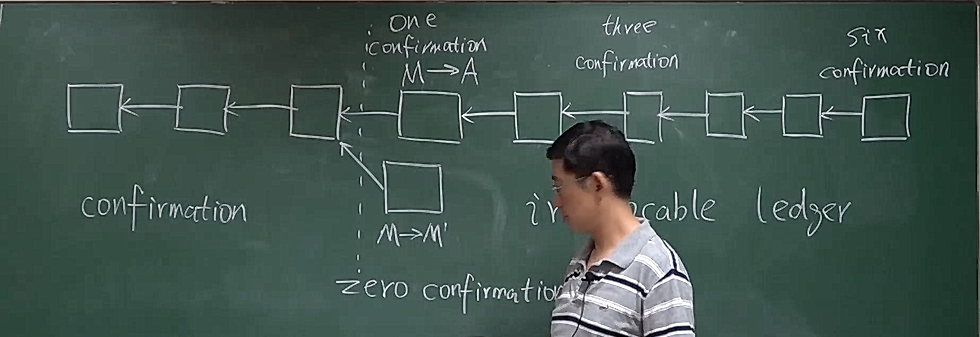 one
confirmation
M→A
three
confirmation
six
confirmation
confirmation
M→M'
ledger
zero confirmation